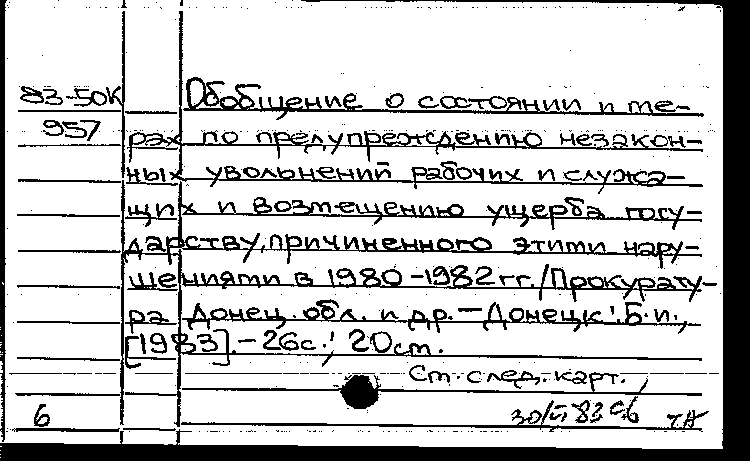 83-50К Обобщение о состоянии и ме-
957 рах по предупреждению незакон-
ных увольнений рабочих и служа-
щих и возмещению ущерба госу-
дарству, причиненного этими нару-
шениями в 1980-1982 гг./Прокурату-
ра Донец. обл. и др. - Донецк: Б.и.,
[1983]. - 26с.; 20см.
См. след. карт.
6 30/VI 83